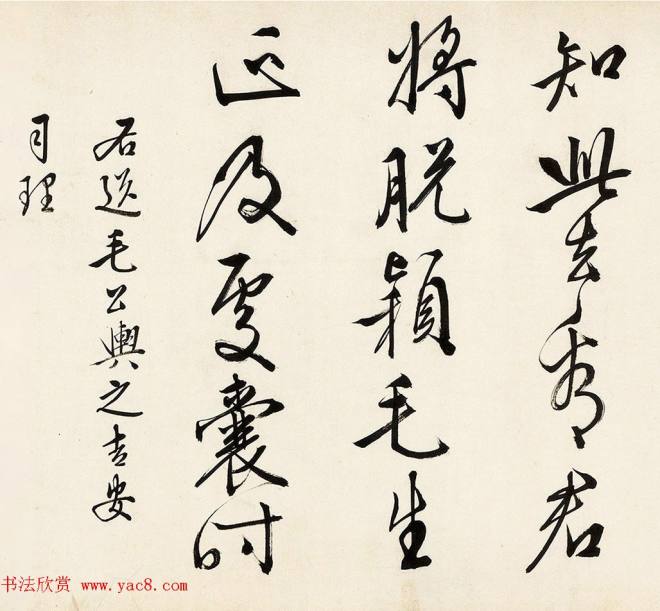 知此去看君
將脫穎毛生
正及處囊時
右送毛公輿之吉安
司理
书法欣赏 www.yac8.com